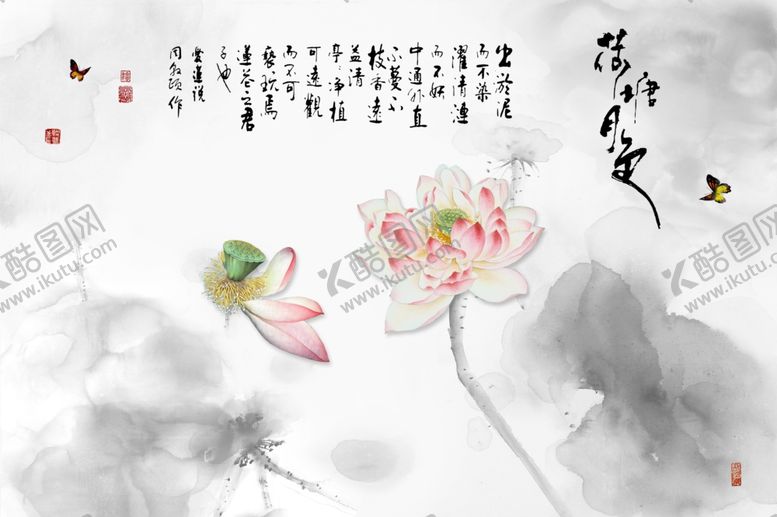 荷塘月色
出淤泥
而不染
濯清漣
而不妖
中通外直
不蔓不
枝香遠
益清
亭亭淨植
可遠觀
而不可
褻玩焉
蓮花之君
子也
愛蓮說
周敦頤作
酷图网
www.ikutu.com
酷图网
www.ikutu.com
酷图网
www.ikutu.com